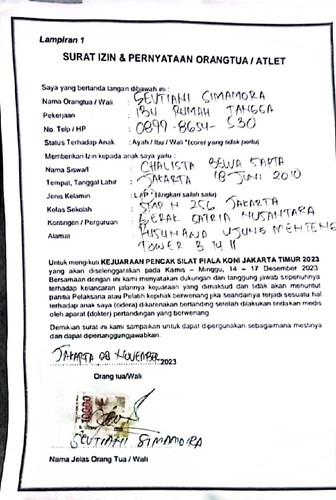 Lampiran 1
SURAT IZIN & PERNYATAAN ORANGTUA / ATLET
Saya yang bertanda tangan dibawah ini :
Nama Orangtua / Wali : SEVTIANI SIMAMORA
Pekerjaan : IBU RUMAH TANGGA
No. Telp / HP : 0899-8654-530
Status Terhadap Anak : Ayah / Ibu / Wali *(coret yang tidak perlu)
Memberikan Izin kepada anak saya yaitu :
Nama Siswa/i : CHALISTA BELVA SAPTA
Tempat, Tanggal Lahir : JAKARTA 18 JUNI 2010
Jenis Kelamin : L&P (lingkari salah satu)
Kelas Sekolah : SMP N 256 JAKARTA
Kontingen / Perguruan : GERAK SATRIA NUSANTARA
Alamat : RUSUNAWA UJUNG MENTENG
TOWER B 14 11
Untuk mengikuti KEJUARAAN PENCAK SILAT PIALA KONI JAKARTA TIMUR 2023
yang akan diselenggarakan pada Kamis – Minggu, 14 – 17 Desember 2023.
Bersamaan dengan ini kami menyatakan dukungan dan tanggung jawab sepenuhnya
terhadap kelancaran jalannya kejuaraan yang dimaksud dan tidak akan menuntut
pantia Pelaksana atau Pelatih kejohan berwenang jika seandainya terjadi sesuatu hal
terhadap anak saya (cidera) dikarenakan bertanding setelah dilakukan tindakan medis
oleh aparat (dokter) pertandingan yang berwenang
Demikian surat ini kami sampaikan untuk dapat dipergunakan sebagaimana mestinya
dan dapat dipertanggungjawabkan.
JAKARTA 08 NOVEMBER 2023
Orang tua/Wali
10000
SEVTIANI SIMAMORA
Nama Jelas Orang Tua / Wali